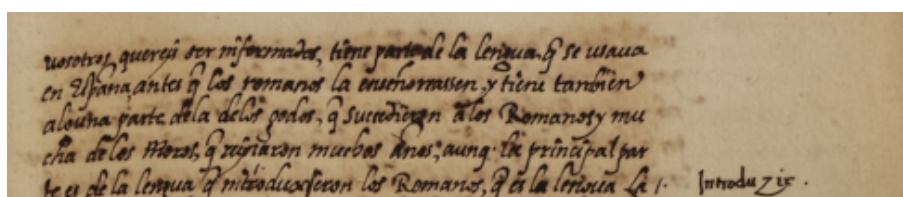 vosotros quereis ser informados, tiene parte de la lengua q̃ se usava
en España antes q̃ los romanos la enseñorassen, y tiene tanbien
alguna parte dela delos godos, q̃ sucedieron a los Romanos y mu
cha de los Moros, q̃ reynaron muchos años; aunq̃ la principal par
te es de la lengua q̃ introduxeron los Romanos, q̃ es la lengua La
Introduzir.